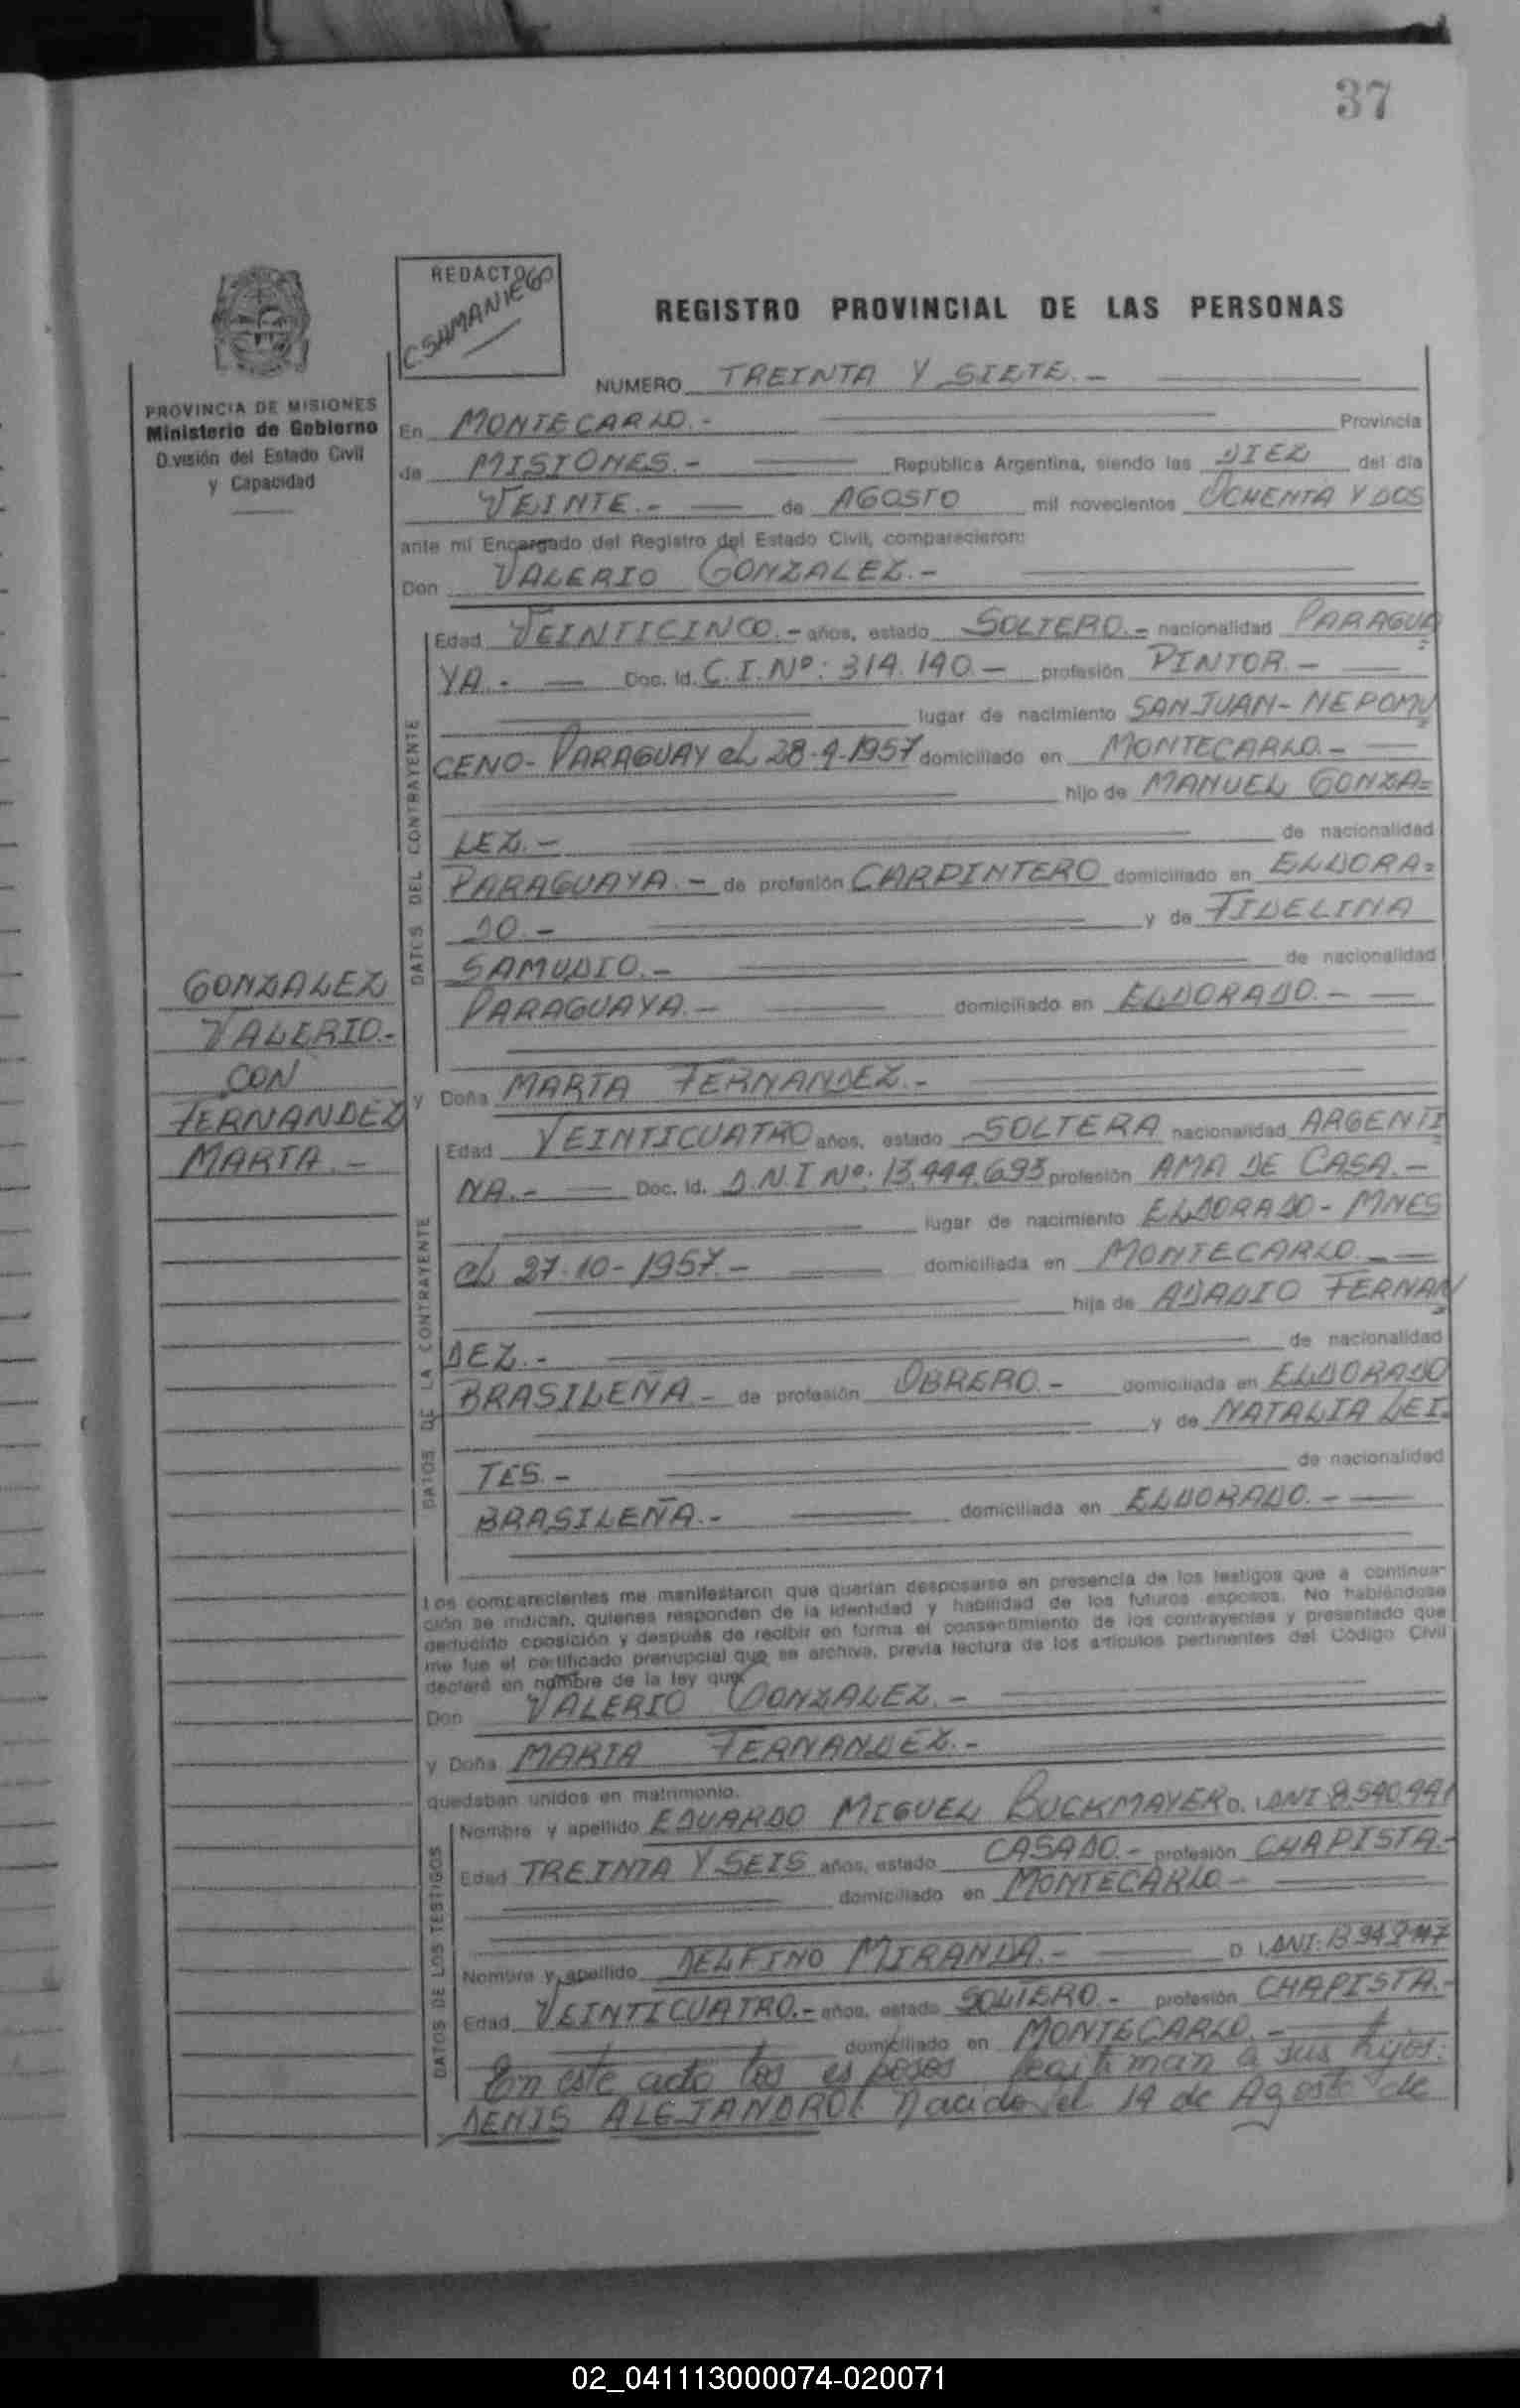 37
REDACTO
C. SAMANIEGO
REGISTRO PROVINCIAL DE LAS PERSONAS
NUMERO TREINTA Y SIETE.-
PROVINCIA DE MISIONES
Ministerio de Gobierno
División del Estado Civil
y Capacidad
En MONTECARLO.- Provincia
de MISIONES.- República Argentina, siendo las DIEZ del día
VEINTE.- de AGOSTO mil novecientos OCHENTA Y DOS
ante mí Encargado del Registro del Estado Civil, comparecieron:
Don VALERIO GONZALEZ.-
DATOS DEL CONTRAYENTE
Edad VEINTICINCO.- años, estado SOLTERO.- nacionalidad PARAGUA=
YA.- Doc. Id. C.I.Nº: 314.140.- profesión PINTOR.-
lugar de nacimiento SAN JUAN-NEPOMU=
CENO-PARAGUAY el 28-4-1957 domiciliado en MONTECARLO.-
hijo de MANUEL GONZA=
LEZ.- de nacionalidad
PARAGUAYA.- de profesión CARPINTERO domiciliado en ELDORA=
DO.- y de FIDELINA
SAMUDIO.- de nacionalidad
PARAGUAYA.- domiciliado en ELDORADO.-
GONZALEZ
VALERIO.-
CON
FERNANDEZ
MARTA.-
y Doña MARTA FERNANDEZ.-
DATOS DE LA CONTRAYENTE
Edad VEINTICUATRO años, estado SOLTERA nacionalidad ARGENTI=
NA.- Doc. Id. D.N.I Nº: 13.444.693 profesión AMA DE CASA.-
lugar de nacimiento ELDORADO-MNES
el 27-10-1957.- domiciliada en MONTECARLO.-
hija de ADADIO FERNAN=
DEZ.- de nacionalidad
BRASILEÑA.- de profesión OBRERO.- domiciliada en ELDORADO
y de NATALIA LEI=
TES.- de nacionalidad
BRASILEÑA.- domiciliada en ELDORADO.-
Los comparecientes me manifestaron que querían desposarse en presencia de los testigos que a continua-
ción se indican, quienes responden de la identidad y habilidad de los futuros esposos. No habiéndose
deducido oposición y después de recibir en forma el consentimiento de los contrayentes y presentado que
me fue el certificado prenupcial que se archiva, previa lectura de los artículos pertinentes del Código Civil
declaré en nombre de la ley que:
Don VALERIO GONZALEZ.-
y Doña MARTA FERNANDEZ.-
quedaban unidos en matrimonio.
DATOS DE LOS TESTIGOS
Nombre y apellido EDUARDO MIGUEL BUCKMAYER D. I. DNI 8.540.441
Edad TREINTA Y SEIS años, estado CASADO.- profesión CHAPISTA.-
domiciliado en MONTECARLO.-
Nombre y apellido DELFINO MIRANDA.- D. I. DNI:
Edad VEINTICUATRO.- años, estado SOLTERO.- profesión CHAPISTA.-
domiciliado en MONTECARLO.-
En este acto los esposos legitiman a sus hijos:
DENIS ALEJANDRO nacido el 14 de Agosto de
02_041113000074-020071